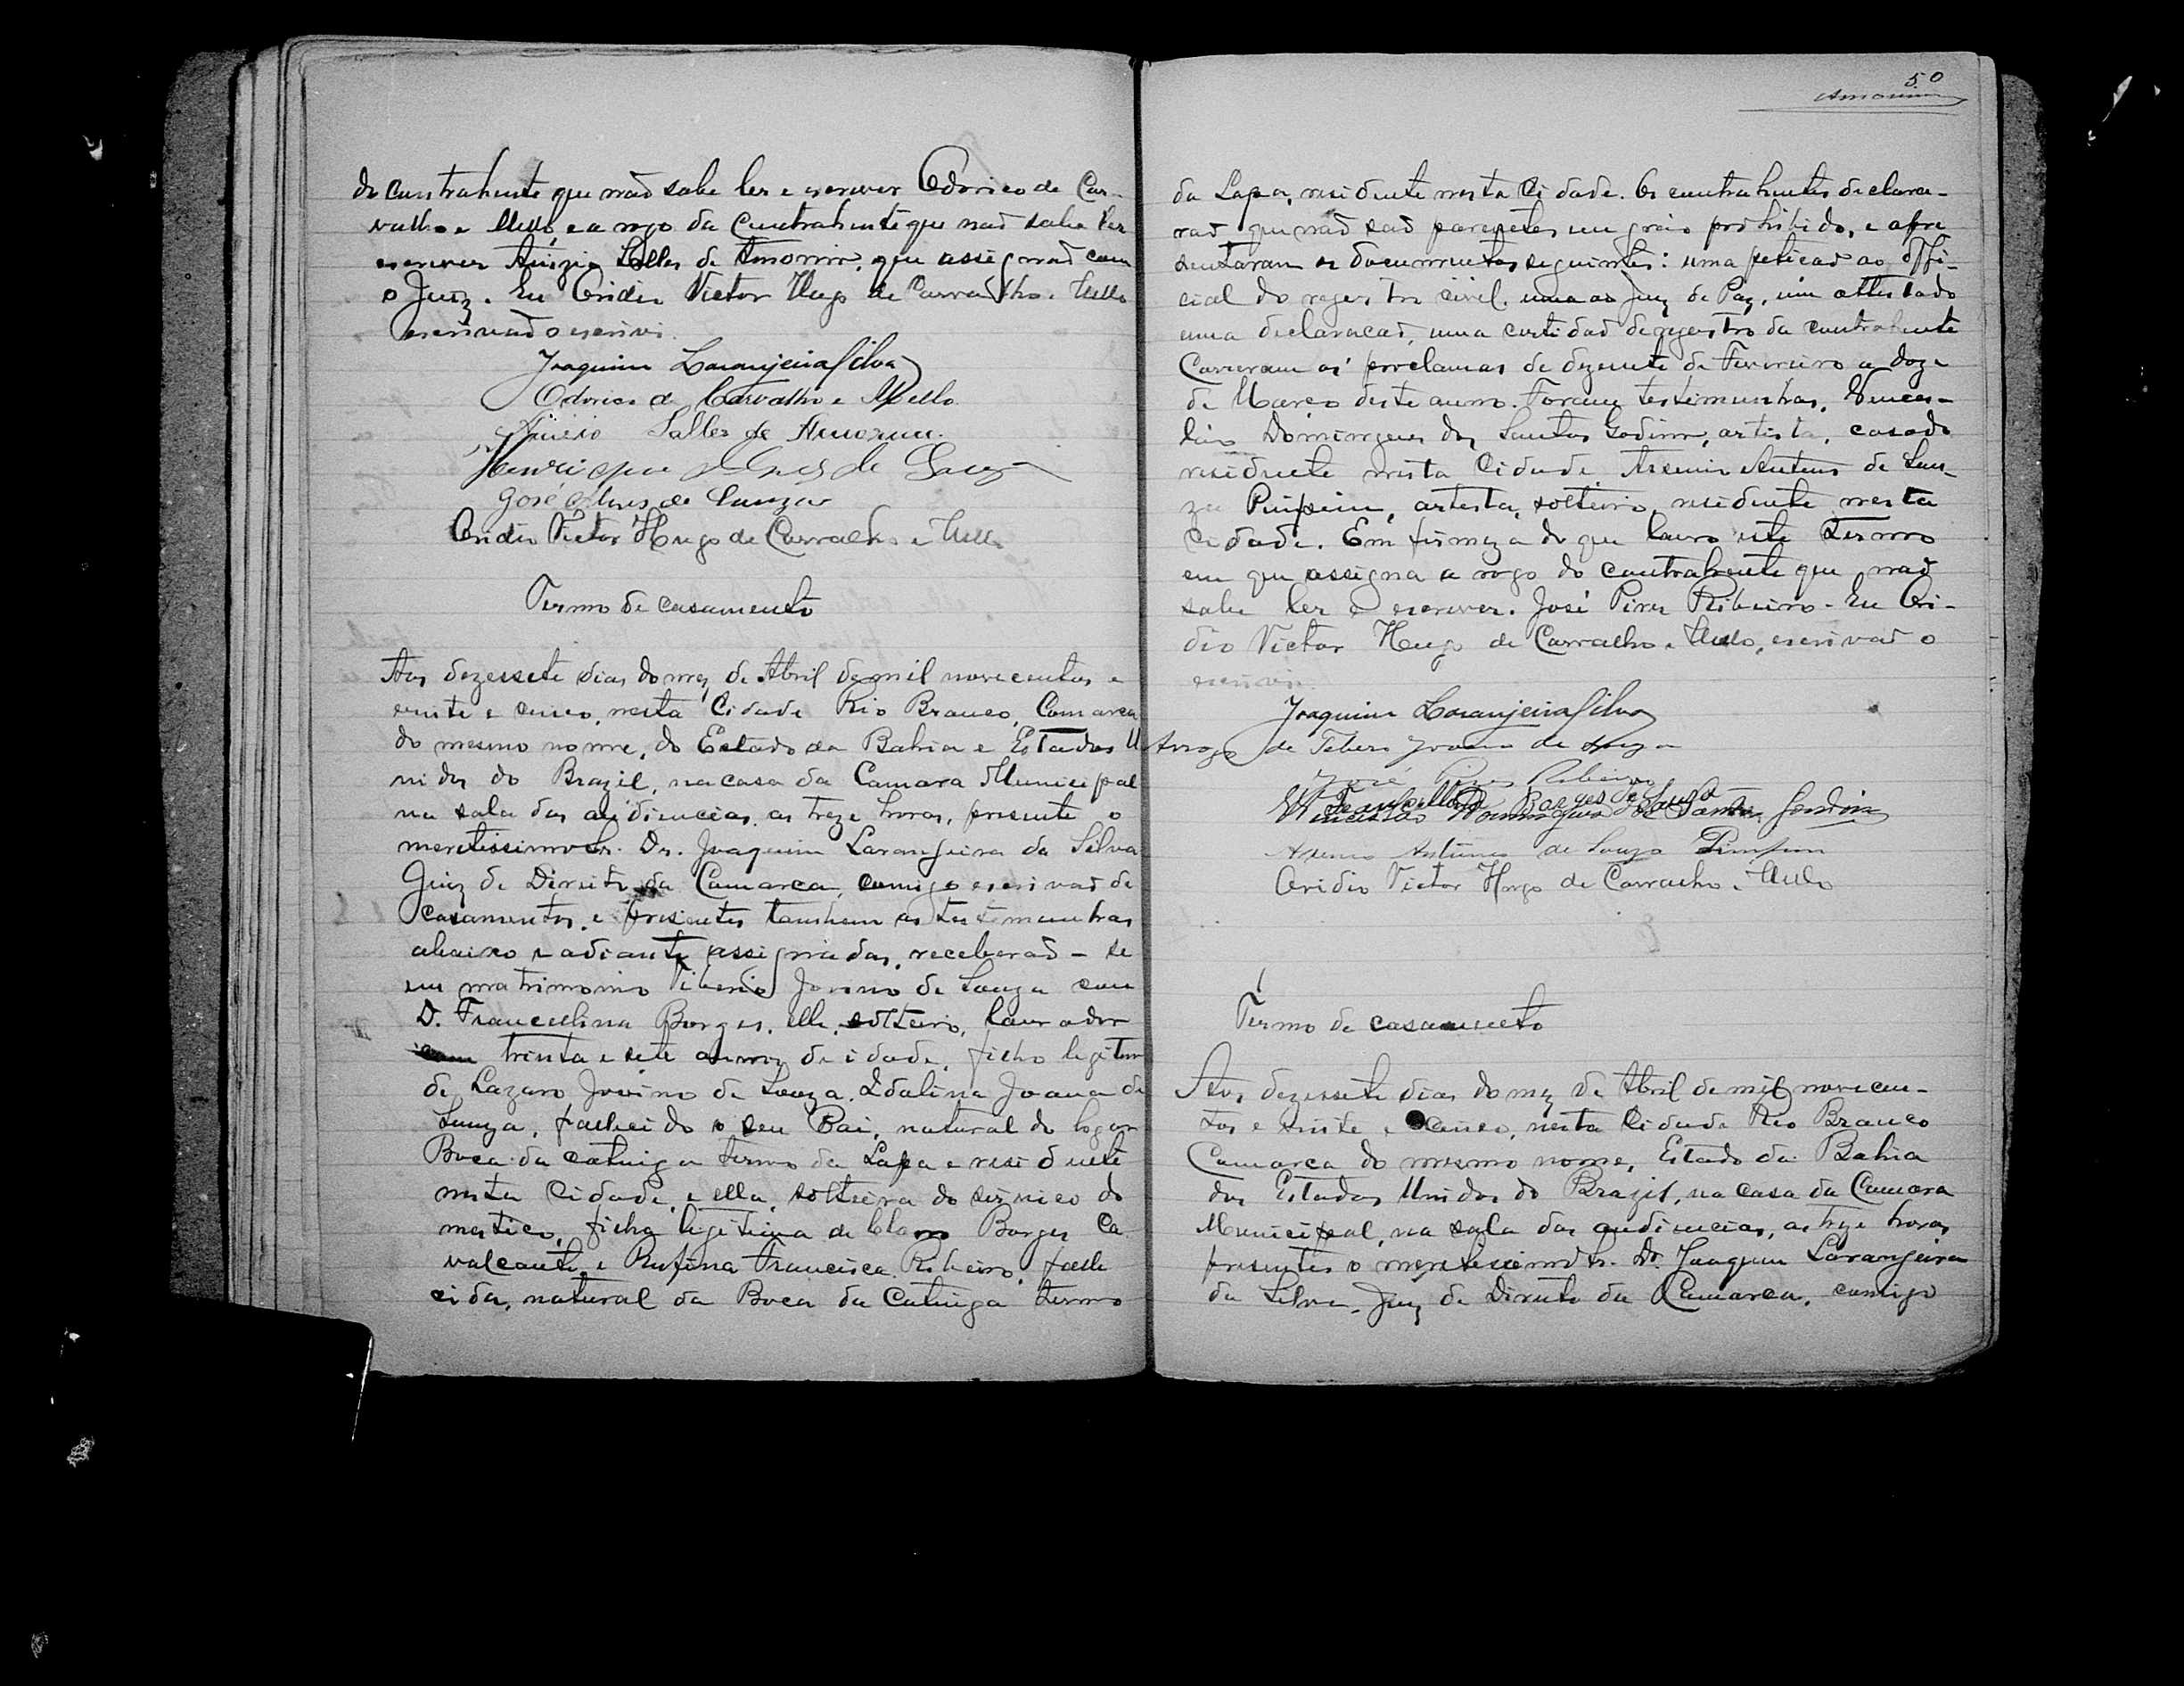 do contrahente que não sabe ler e escrever Odorico de Car-
valho e Mello, e a rogo da contrahente que não sabe ler
escrever Salles de Amorim, que assignaõ com
o Juiz. Eu Ovidio Victor Hugo de Carvalho e Mello
escrivaõ o escrivi.
Joaquim Laranjeira Silva
Odorico de Carvalho e Mello
Salles de Amorim.
Henrique Alves de Souza
José Alves de Souza
Ovidio Victor Hugo de Carvalho e Mello
Termo de casamento
Aos dezessete dias do mez de Abril de mil novecentos e
vinte e cinco, nesta Cidade Rio Branco, Comarca
do mesmo nome, do Estado da Bahia e Estados U
nidos do Brazil, na casa da Camara Municipal
na sala das audiencias, as treze horas, presente o
meretissimo Sr. Dr. Joaquim Laranjeira da Silva
Juiz de Direito da Comarca, comigo escrivaõ de
casamentos, e presentes tambem as testemunhas
abaixo e adiante assignadas, receberaõ-se
em matrimonio Tiberio Jovino de Souza com
D. Francellina Borges, elle, solteiro, lavrador
com trinta e sete annos de idade, filho legitimo
de Lazaro Jovino de Souza, Idalina Joana de
Souza, fallecido o seu Pai, natural do logar
Boca da catinga termo da Lapa e residente
nesta Cidade, e ella, solteira do serviço do
mestico, filha legitima de Borges Ca
valcante, e Rufina Francisca Ribeiro, falle
cida, natural da Boca da Catinga termo
50
Amorim
da Lapa, residente nesta Cidade. Os contrahentes declara-
raõ que não saõ parentes em grau prohibido, e apre
sentaram os documentos seguintes: uma peticaõ ao Offi-
cial do registro civil, uma ao Juiz de Paz, um attestado
uma declaracaõ, uma certidaõ de registro da contrahente
Correram os proclamas de dezenete de Fevereiro a doze
de Março deste anno. Foram testemunhas, Vences-
láo Domingues dos Santos Gondim, artista, casado
residente nesta Cidade, Arsenio Antunes de Sou-
za Pimpim, artista, solteiro, residente nesta
Cidade. Em firmeza do que lavro este Termo
em que assigna a rogo do contrahente que naõ
sabe ler e escrever. José Pires Ribeiro. Eu Ovi-
dio Victor Hugo de Carvalho e Mello, escrivaõ o
escrivi.
Joaquim Laranjeira Silva
Arrogo de Tiberio Jovino de Souza
José Pires Ribeiro
Francellina Borges de Souza
Venceslao Domingues dos Santos Gondim
Arsenio Antunes de Souza Pimpim
Ovidio Victor Hugo de Carvalho e Mello
Termo de casamento
Aos dezessete dias do mez de Abril de mil novecen-
tos e vinte e cinco, nesta Cidade Rio Branco
Comarca do mesmo nome, Estado da Bahia
dos Estados Unidos do Brazil, na casa da Camara
Municipal, na sala das audiencias, as treze horas
presentes o meretissimo Sr. Dr. Joaquim Laranjeira
da Silva, Juiz de Direito da Comarca, comigo